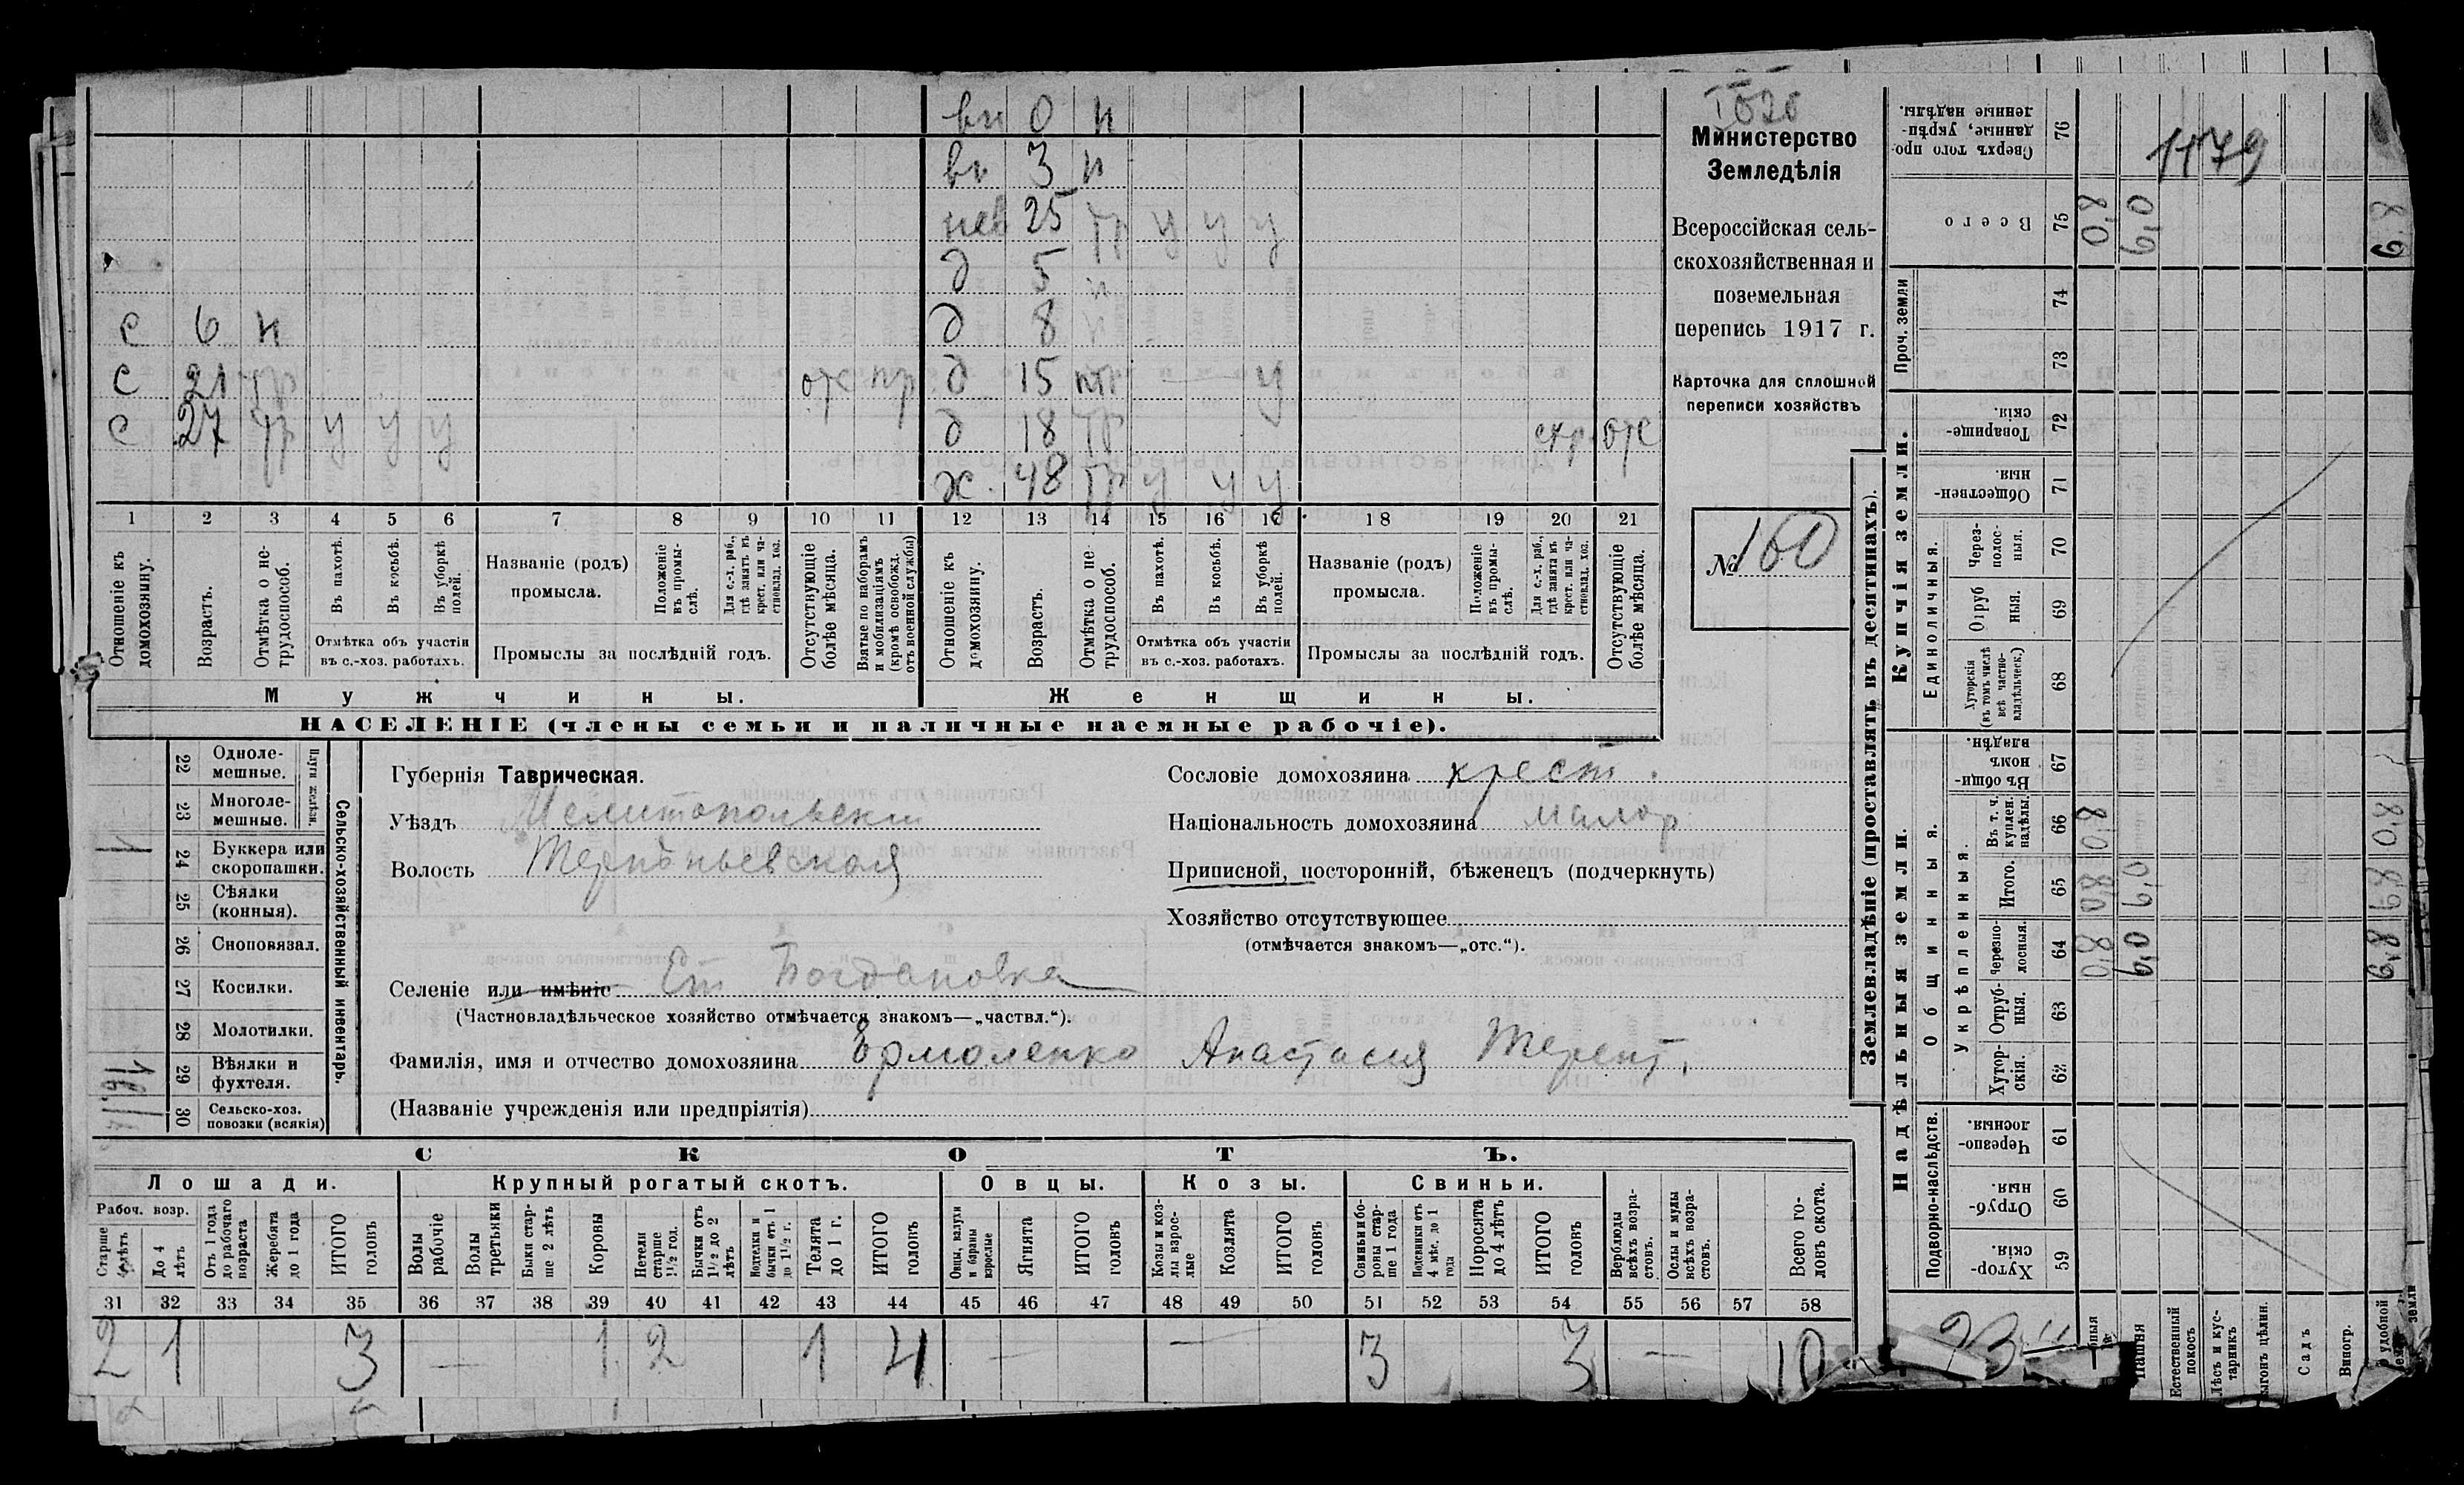 вн 0 н
вн 3 н
нев 25 тр у у у
д 5 н
с 6 н д 8 н
с 21 тр отс пр д 15 пт — у
с 27 тр у у у д 18 тр отс
ж. 48 тр у у у
1 2 3 4 5 6 7 8 9 10 11 12 13 14 15 16 17 18 19 20 21
Отношеніе къ домохозяину.
Возрастъ.
Отмѣтка о не-трудоспособ.
Въ пахотѣ.
Въ косьбѣ.
Въ уборкѣ полей.
Отмѣтка объ участіи
въ с.-хоз. работахъ.
Названіе (родъ)
промысла.
Положеніе въ промы-слѣ.
Для с.-х. раб., гдѣ занятъ въ крест. или ча-стновлад. хоз.
Промыслы за послѣдній годъ.
Отсутствующіе болѣе мѣсяца.
Взятые по наборамъ и мобилизаціямъ (кромѣ освобожд. отъ военной службы)
Отношеніе къ домохозяину.
Возрастъ.
Отмѣтка о не трудоспособ.
Въ пахотѣ.
Въ косьбѣ.
Въ уборкѣ полей.
Отмѣтка объ участіи
въ с.-хоз. работахъ.
Названіе (родъ)
промысла.
Положеніе въ промы-слѣ.
Для с.-х. раб., гдѣ занята въ крест. или ча-стновлад. хоз.
Промыслы за послѣдній годъ.
Отсутствующіе болѣе мѣсяца.
Мужчины. Женщины.
НАСЕЛЕНІЕ (члены семьи и наличные наемные рабочіе).
Министерство
Земледѣлія
Всероссійская сель-
скохозяйственная и
поземельная
перепись 1917 г.
Карточка для сплошной
переписи хозяйствъ
№ 160
Сельско-хозяйственный инвентарь.
Плуги желѣзн.
22 Одноле-мешные.
23 Многоле-мешные.
1 24 Буккера или скоропашки.
25 Сѣялки (конныя).
26 Сноповязал.
27 Косилки.
28 Молотилки.
1 29 Вѣялки и фухтеля.
30 Сельско-хоз. повозки (всякія)
Губернія Таврическая.
Уѣздъ Мелитопольскій
Волость Терпѣньевская
Сословіе домохозяина крест.
Національность домохозяина малор
Приписной, посторонній, бѣженецъ (подчеркнуть)
Хозяйство отсутствующее
(отмѣчается знакомъ—„отс.“).
Селеніе или имѣніе Ст Богдановка
(Частновладѣльческое хозяйство отмѣчается знакомъ—„частвл.“).
Фамилія, имя и отчество домохозяина Ермоленко Анастасия Терент.
(Названіе учрежденія или предпріятія)
СКОТЪ.
Лошади. Крупный рогатый скотъ. Овцы. Козы. Свиньи.
Рабоч. возр.
Старше 4 лѣтъ
До 4 лѣтъ
Отъ 1 года до рабочаго возраста
Жеребята до 1 года
ИТОГО головъ
Волы рабочіе
Волы третьяки
Быки стар-ше 2 лѣтъ
Коровы
Нетели старше 1½ год.
Бычки отъ 1½ до 2 лѣтъ
Нетелки и бычки отъ 1 до 1½ г.
Телята до 1 г.
ИТОГО головъ
Овцы, валухи и бараны взрослые
Ягнята
ИТОГО головъ
Козы и коз-лы взрос-лые
Козлята
ИТОГО головъ
Свиньи и бо-ровы стар-ше 1 года
Подсвинки отъ 4 мѣс. до 1 года
Поросята до 4 лѣтъ
ИТОГО головъ
Верблюды всѣхъ возра-стовъ.
Ослы и мулы всѣхъ возра-стовъ.
Всего го-ловъ скота.
31 32 33 34 35 36 37 38 39 40 41 42 43 44 45 46 47 48 49 50 51 52 53 54 55 56 57 58
2 1 3 — 1 2 1 4 — — 3 3 — 10
Землевладѣніе (проставлять въ десятинахъ).
Купчія земли.
Надѣльныя земли.
Сверхъ того про-данные, укрѣп-ленные надѣлы. 76
1179
Всего 75 0,8 6,0 6,8
Проч. земли 74 73
Товарище-скія. 72
Обществен-ныя. 71
Единоличныя.
Через-полос-ныя. 70
Отруб ныя. 69
Хуторскія (въ томъ числѣ всѣ частно-владѣльческ.) 68
Общинныя.
Въ общи-номъ владѣн. 67
Укрѣпленныя.
Въ т. ч. куплен. надѣлы. 66 0,8 0,8
Итого. 65 0,8 6,0 6,8
Черезпо-лосныя. 64 0,8 6,0 6,8
Отруб-ныя. 63
Хутор-скія. 62
Подворно-наслѣдств.
Черезпо-лосныя. 61
Отруб-ныя. 60
Хутор-скія. 59
23
Пашня
Естественный покосъ
Лѣсъ и кус-тарникъ
Выгонъ цѣлин.
Садъ
Виногр.
удобной земли